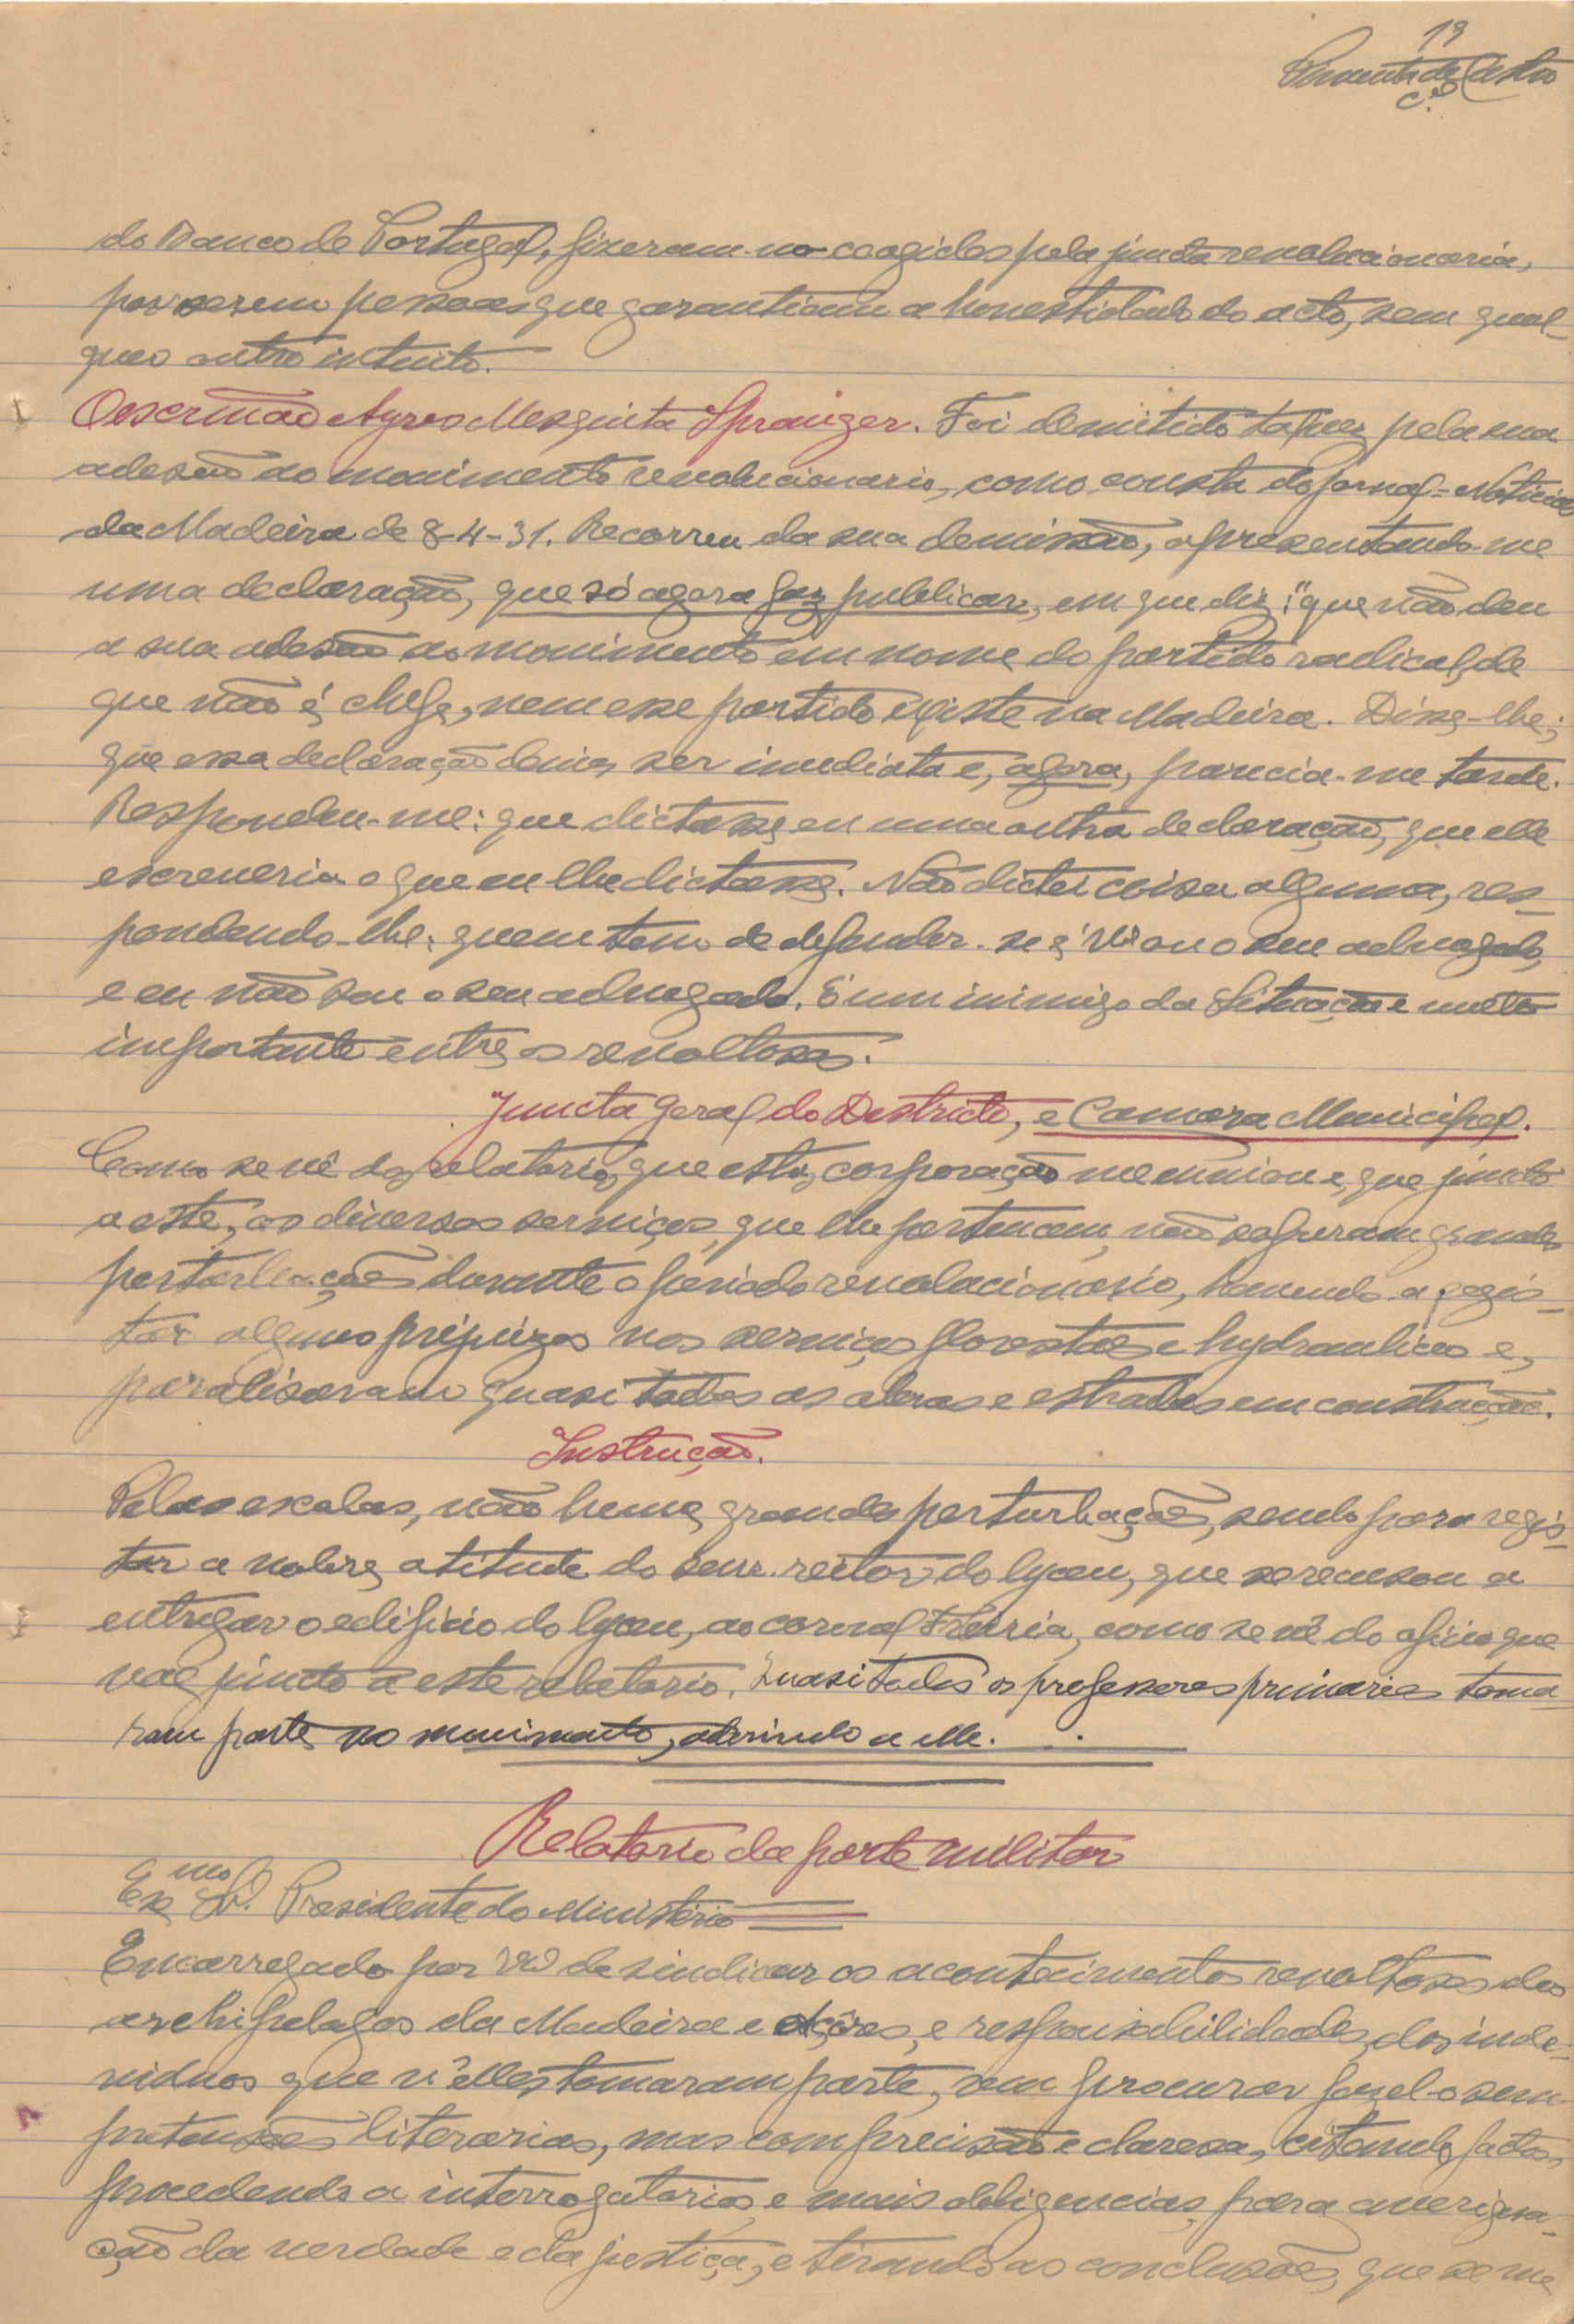 19
Pimenta de Castro
C.el
do Banco de Portugal, fizeram-no coagidos pela junta revolucionaria,
por serem pessoas que garantiam a honestidade do acto, sem qual-
quer outro intuito.
O escrivão Ayres Mesquita Spranger. Foi demitido talvez pela sua
adesão ao movimento revolucionario, como consta do jornal = Noticias
da Madeira de 8-4-31. Recorreu da sua demissão, apresentando-me
uma declaração, que só agora faz publicar, em que diz: "que não deu
a sua adesão ao movimento em nome do partido radical, de
que não é chefe, nem esse partido existe na Madeira. Disse-lhe;
que essa declaração devia ser imediata e, agora, parecia-me tarde.
Respondeu-me: que dictasse eu uma outra declaração, que elle
escreveria o que eu lhe dictasse. Não dictei coisa alguma, res-
pondendo-lhe: quem tem de defender-se é V. ou o seu advogado,
e eu não sou o seu advogado. É um inimigo da Situação e muito
importante entre os revoltosos.
Juncta Geral do Destricto, e Camara Municipal.
Como se vê do relatorio, que esta corporação me enviou e, que juncto
a este, os diversos serviços, que lhe pertencem, não sofreram grandes
perturbações durante o periodo revolucionario, havendo a regis-
tar alguns prejuizos nos serviços florestaes e hydraulicos e,
paralisaram quasi todas as obras e estradas em construcção.
Instrucção.
Pelas escolas, não houve grandes perturbações, sendo para regis-
tar a nobre atitude do senr. reitor do lyceu, que se recusou a
entregar o edificio do lyceu, ao coronel Freiria, como se vê do oficio que
vae juncto a este relatorio. Quasi todos os professores primarios toma-
ram parte no movimento, aderindo a elle.
Relatorio da parte militar
Exmo Sr. Presidente do Ministério
Encarregado por V. de sindicar os acontecimentos revoltosos dos
archipelagos da Madeira e Açôres, e responsabilidades dos inde-
viduos que n'elles tomaram parte, vou procurar fazel-o sem
pretensões literarias, mas com precisão e claresa, citando factos,
procedendo a interrogatorios e mais deligencias, para averigua-
ção da verdade e da justiça, e tirando as conclusões, que se me